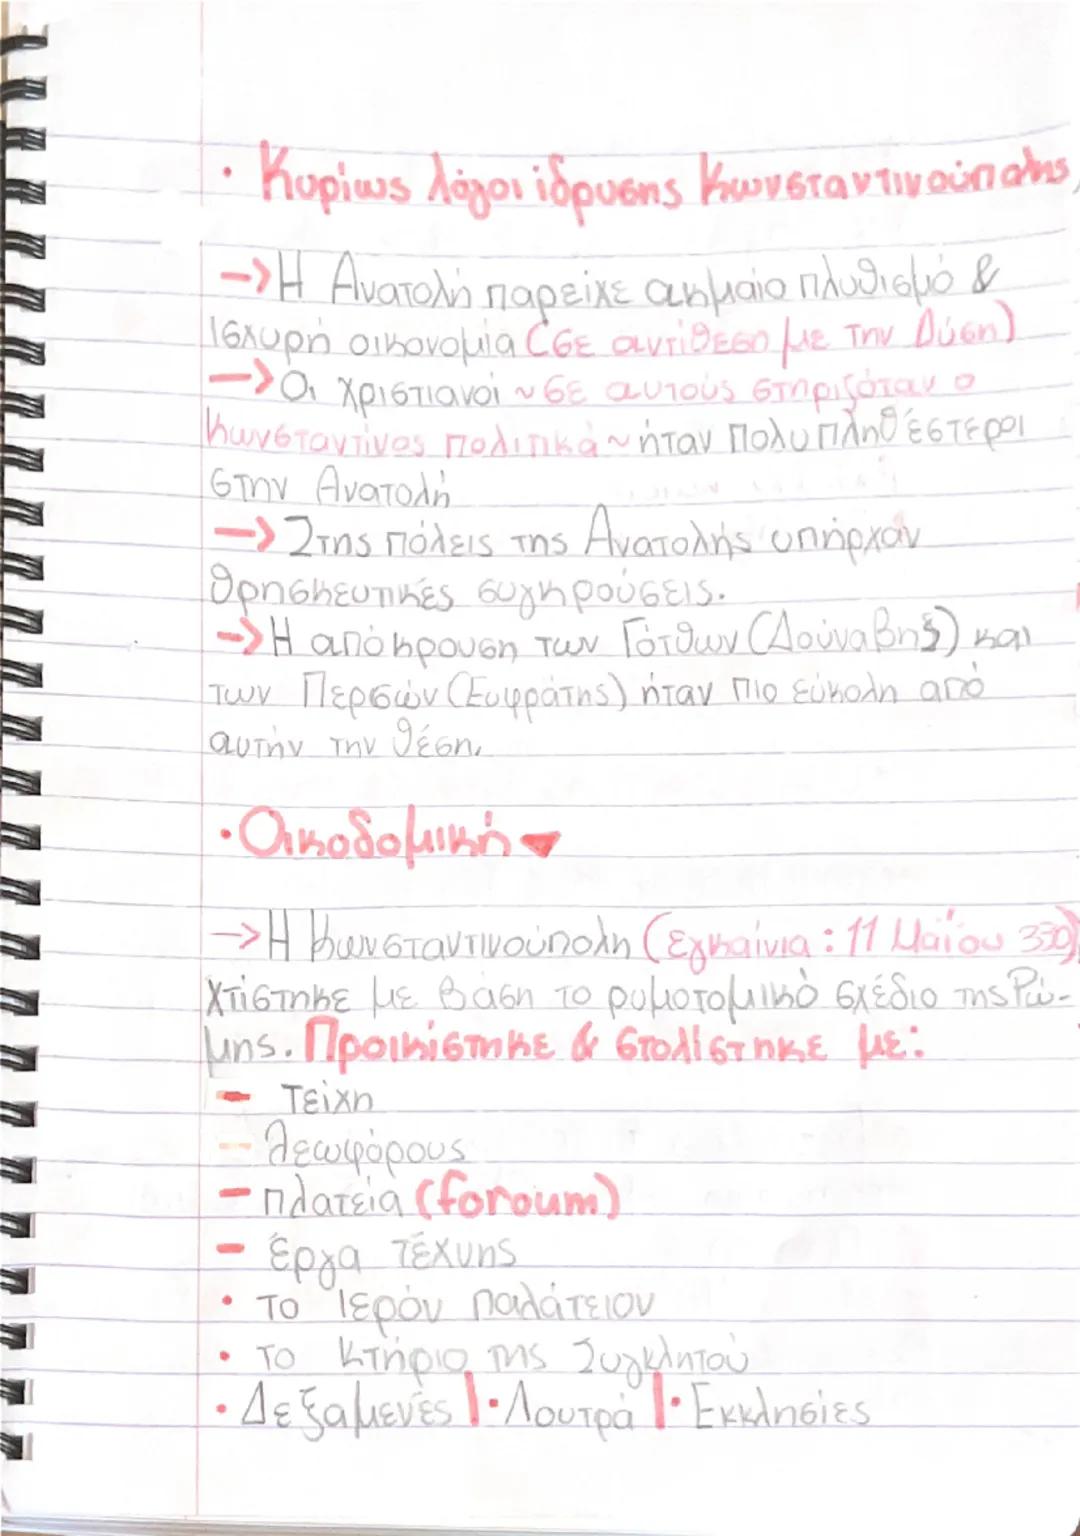 · Κυρίως λόγοι ίδρυσης Κωνσταντινούπολης
→ Η Ανατολή παρείχε ακμαίο πλυθισμό &
ισχυρή οικονομία (σε αντίθεση με την Δύση)
→ Οι χριστιανοί ~ σε αυτούς στηριζόταν ο
Κωνσταντίνος πολιτικά ~ ήταν πολυπληθέστεροι
στην Ανατολή
→ Στης πόλεις της Ανατολής υπήρχαν
θρησκευτικές συγκρούσεις.
→ Η απόκρουση των Γότθων (Δούναβης) και
των Περσών (Ευφράτης) ήταν πιο εύκολη από
αυτήν την θέση.
· Οικοδομική
→ Η Κωνσταντινούπολη (εγκαίνια: 11 Μαΐου 330)
χτίστηκε με βάση το ρυμοτομικό σχέδιο της Ρώ-
μης. Προικίστηκε & στολίστηκε με:
- τείχη
- λεωφόρους
- πλατεία (foroum)
- έργα τέχνης
· το Ιερόν παλάτειον
· το κτήριο της Συγκλητού
· Δεξαμενές | · Λουτρά | · Εκκλησίες